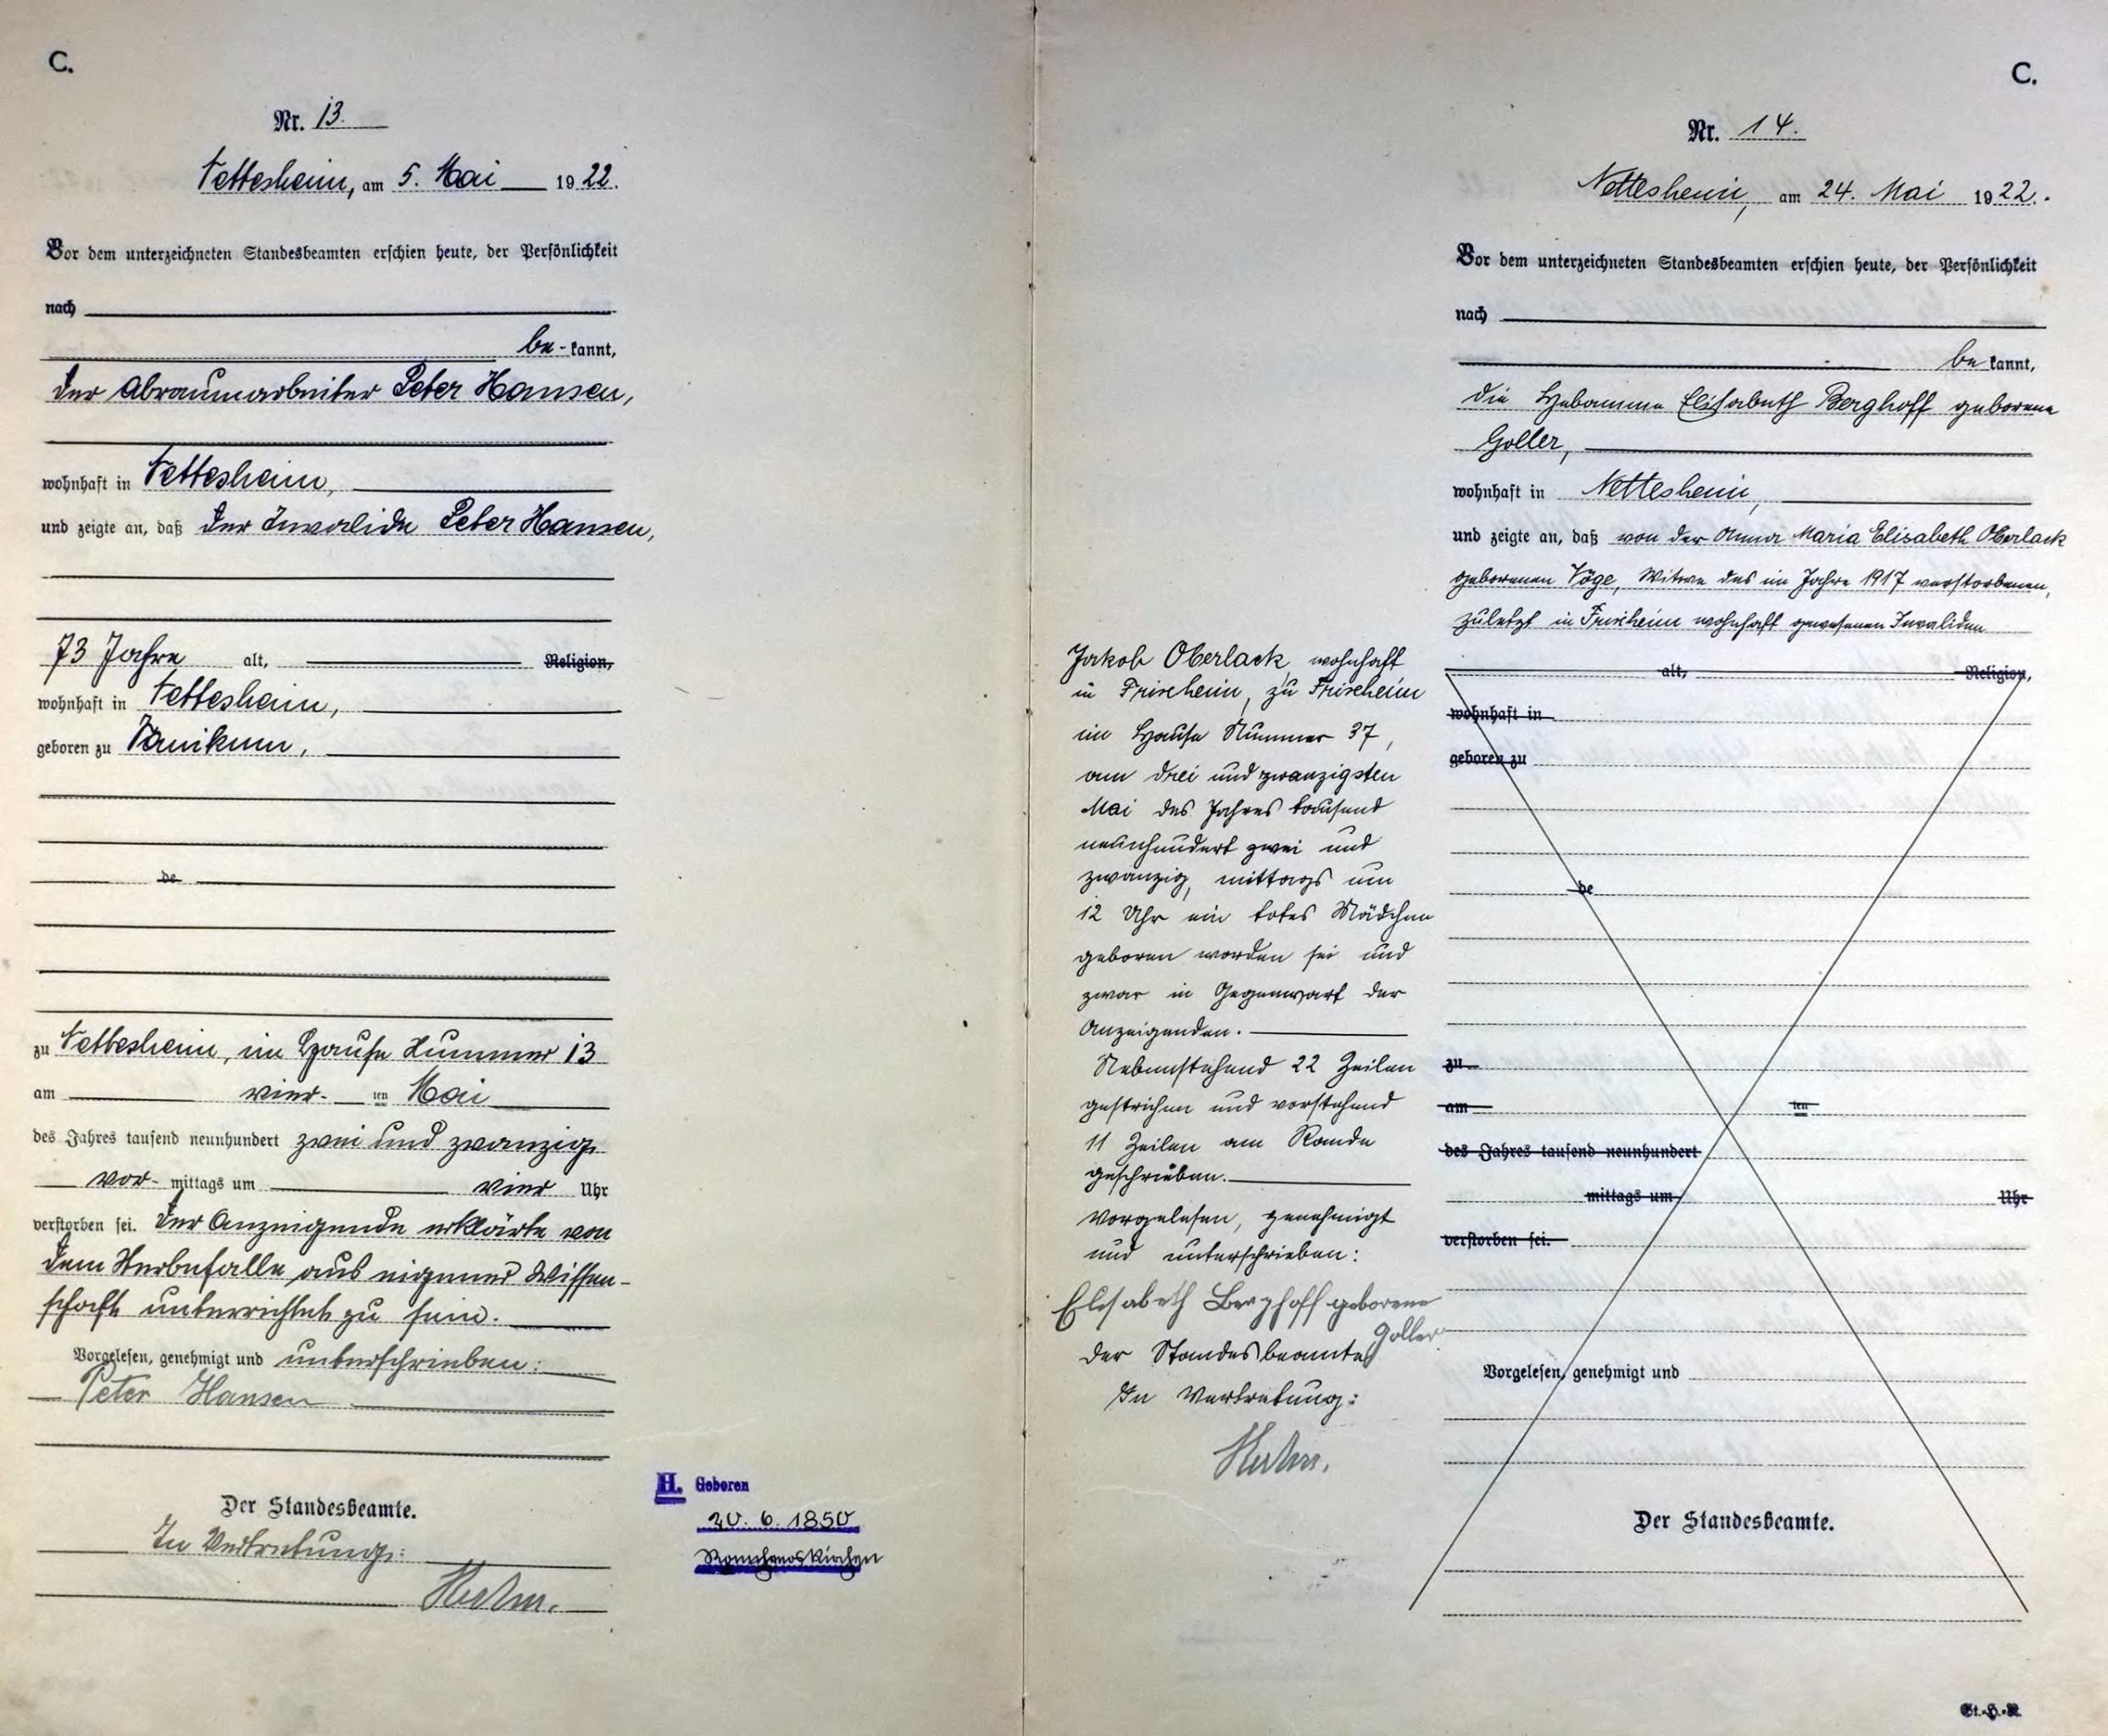 C.
Nr. 13.
Nettesheim, am 5. Mai 1922.
Vor dem unterzeichneten Standesbeamten erschien heute, der Persönlichkeit
nach
be- kannt,
der Abraumarbeiter Peter Hansen,
wohnhaft in Nettesheim,
und zeigte an, daß der Invalide Peter Hansen,
73 Jahre alt, Religion,
wohnhaft in Nettesheim,
geboren zu Vanikum,
de
zu Nettesheim, im Hause Nummer 13
am vier- ten Mai
des Jahres tausend neunhundert zwei und zwanzig
vor- mittags um vier Uhr
verstorben sei. Der Anzeigende erklärte von
dem Sterbefalle aus eigener Wissen-
schaft unterrichtet zu sein.
Vorgelesen, genehmigt und unterschrieben:
Peter Hansen
Der Standesbeamte.
In Vertretung:
H. Geboren
20. 6. 1850
Rommerskirchen
C.
Nr. 14.
Nettesheim, am 24. Mai 1922.
Vor dem unterzeichneten Standesbeamten erschien heute, der Persönlichkeit
nach
be kannt,
die Hebamme Elisabeth Berghoff geborene
Goller,
wohnhaft in Nettesheim,
und zeigte an, daß von der Anna Maria Elisabeth Oberlack
geborenen Vöge, Witwe des im Jahre 1917 verstorbenen,
zuletzt in Frixheim wohnhaft gewesenen Invaliden
Jakob Oberlack wohnhaft
in Frixheim, zu Frixheim
im Hause Nummer 37,
am drei und zwanzigsten
Mai des Jahres tausend
neunhundert zwei und
zwanzig, mittags um
12 Uhr ein totes Mädchen
geboren worden sei und
zwar in Gegenwart der
Anzeigenden.
Nebenstehend 22 Zeilen
gestrichen und vorstehend
11 Zeilen am Rande
geschrieben.
Vorgelesen, genehmigt
und unterschrieben:
Elisabeth Berghoff geborene
Goller.
Der Standesbeamte
In Vertretung:
alt, Religion,
wohnhaft in
geboren zu
de
zu
am ten
des Jahres tausend neunhundert
mittags um Uhr
verstorben sei.
Vorgelesen, genehmigt und
Der Standesbeamte.